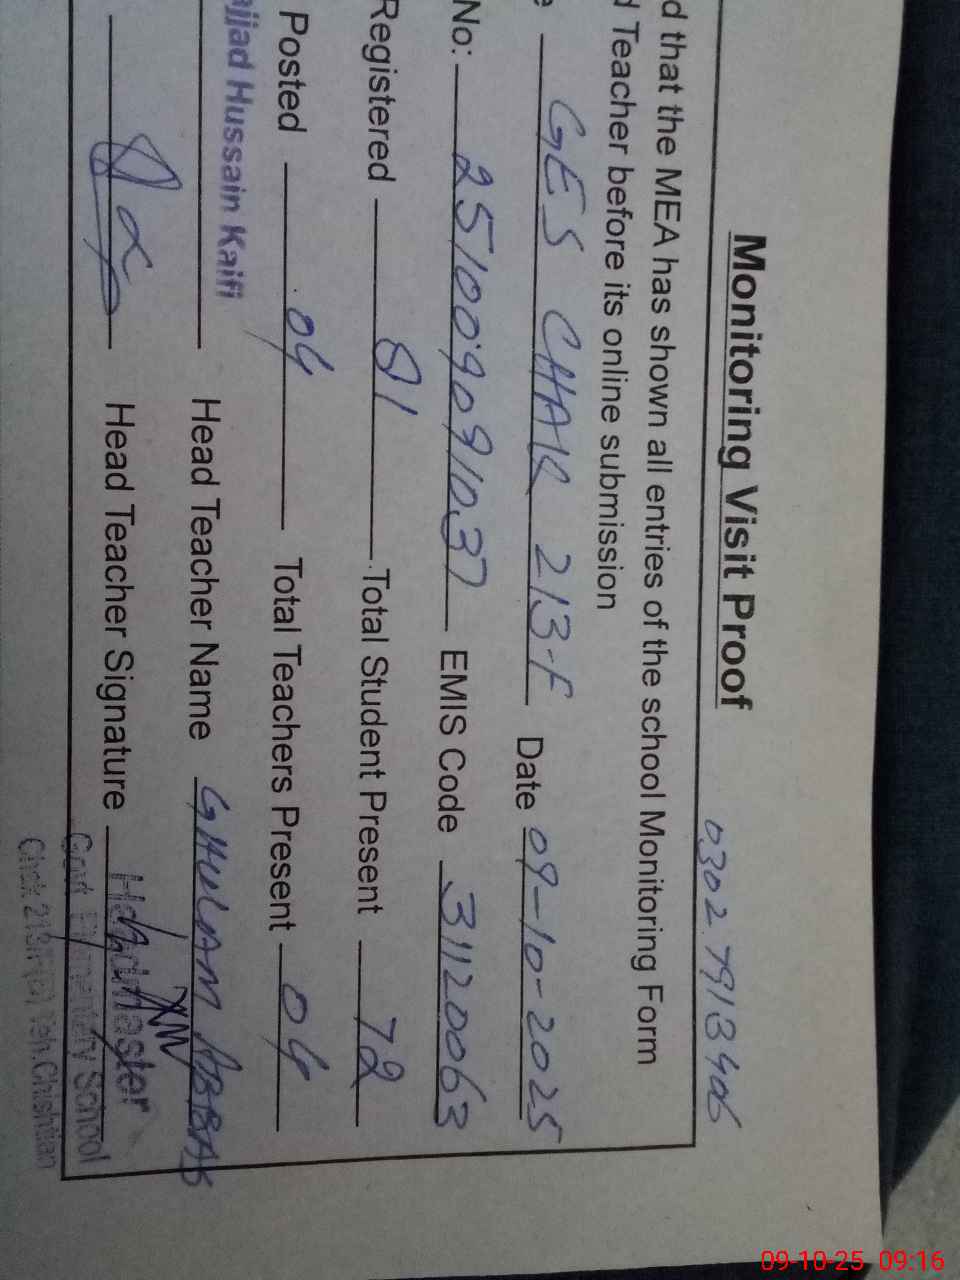 Monitoring Visit Proof
0302 7913406
d that the MEA has shown all entries of the school Monitoring Form
d Teacher before its online submission
e GES CHAK 213-F Date 09-10-2025
No: 251009091037 EMIS Code 31120063
Registered 81 Total Student Present 72
Posted 04 Total Teachers Present 04
ajjad Hussain Kaifi Head Teacher Name GHULAM ABBAS
Head Teacher Signature
Headmaster
Govt Elementary School
Chak 213/F Teh. Chishtian
09-10-25 09:16